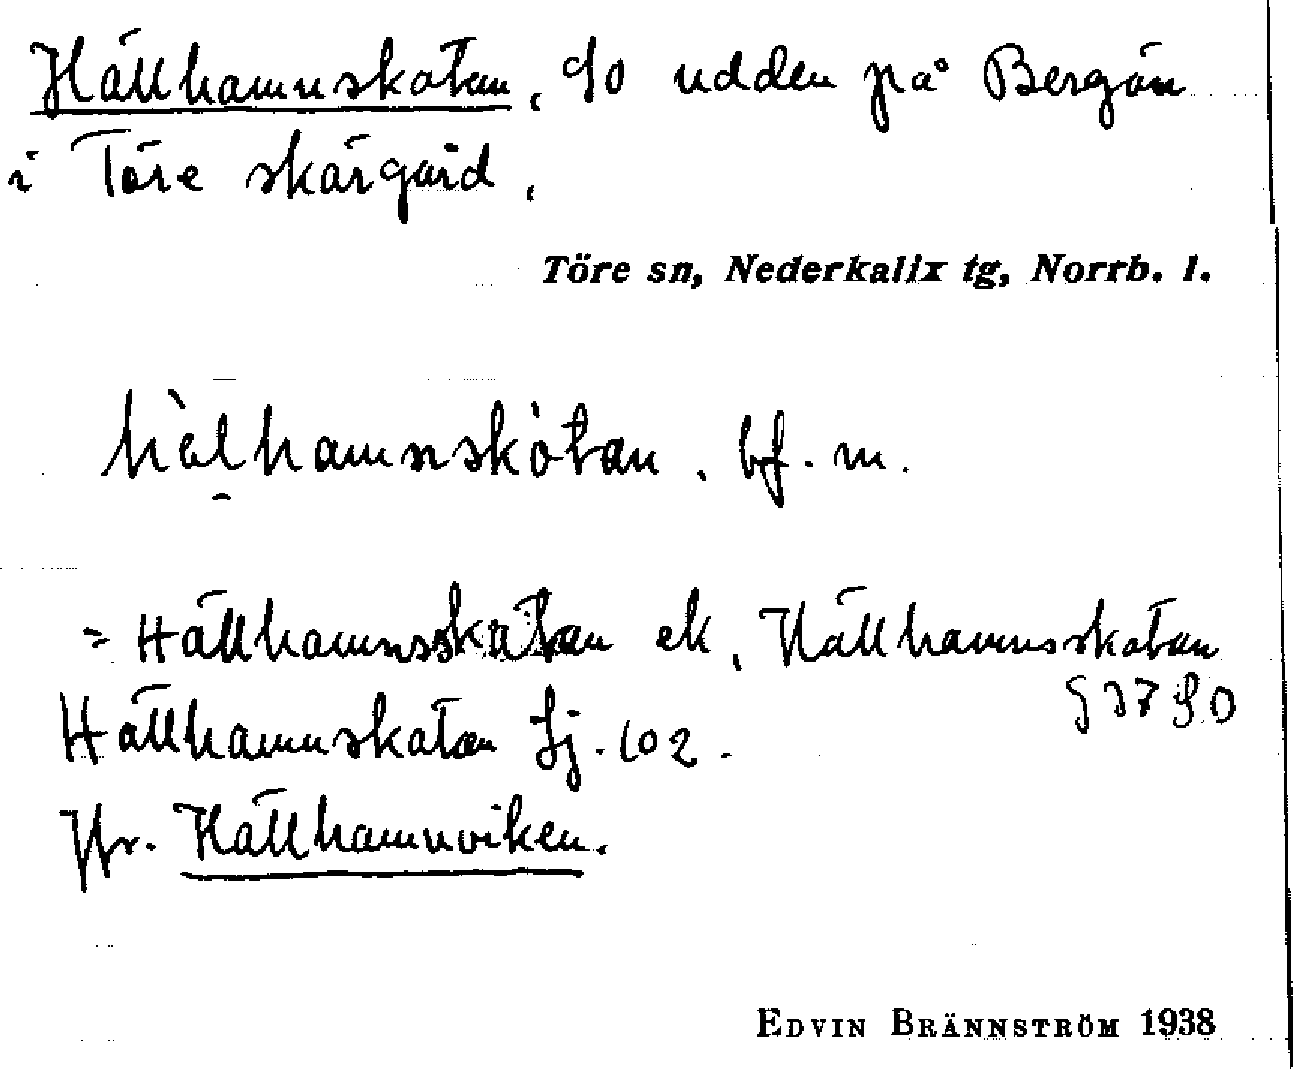 Hällhamnskatan, So udden på Bergön
i Töre skärgård.
Töre sn, Nederkalix tg, Norrb. l.
hèlhamnskòtan. bf. m.
= Hällhamnsskatan ek, Hällhamnsskatan
Hällhamnskatan Sj. 102.
Jfr. Hällhamnviken.
EDVIN BRÄNNSTRÖM 1938